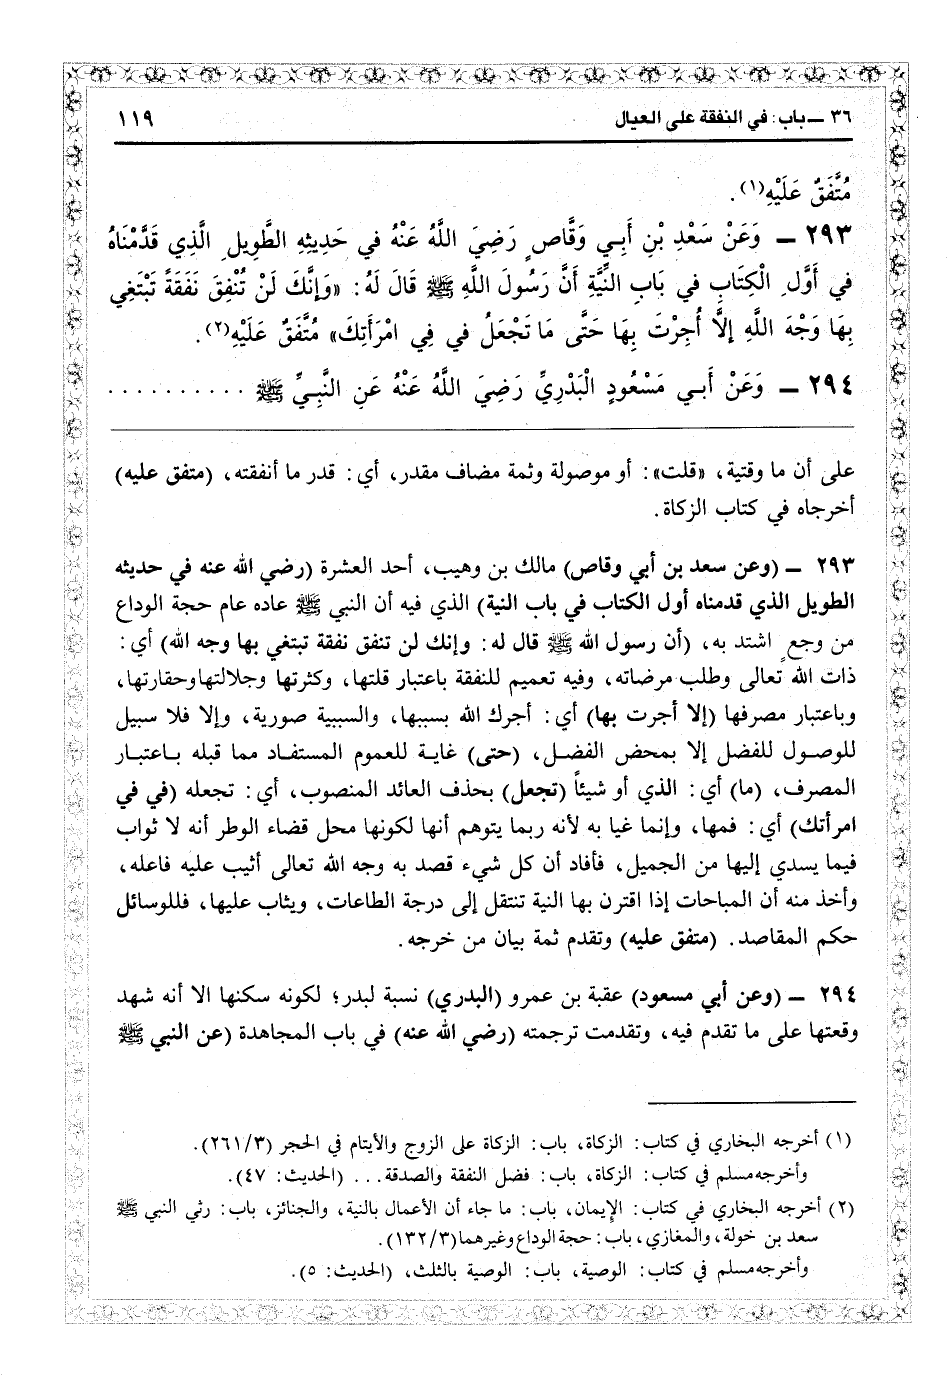 ٣٦ ـ باب: في النفقة على العيال ١١٩
مُتَّفَقٌ عَلَيْهِ(١).
٢٩٣ ـ وَعَنْ سَعْدِ بْنِ أَبِي وَقَّاصٍ رَضِيَ اللَّهُ عَنْهُ في حَدِيثِهِ الطَّوِيلِ الَّذِي قَدَّمْنَاهُ
في أَوَّلِ الْكِتَابِ في بَابِ النِّيَّةِ أَنَّ رَسُولَ اللَّهِ ﷺ قَالَ لَهُ: «وَإِنَّكَ لَنْ تُنْفِقَ نَفَقَةً تَبْتَغِي
بِهَا وَجْهَ اللَّهِ إلَّا أُجِرْتَ بِهَا حَتَّى مَا تَجْعَلُ في فِي امْرَأَتِكَ» مُتَّفَقٌ عَلَيْهِ(٢).
٢٩٤ ـ وَعَنْ أَبي مَسْعُودٍ الْبَدْرِيِّ رَضِيَ اللَّهُ عَنْهُ عَنِ النَّبِيِّ ﷺ . . . . . . . . . .
على أن ما وقتية، «قلت»: أو موصولة وثمة مضاف مقدر، أي: قدر ما أنفقته، (متفق عليه)
أخرجاه في كتاب الزكاة.
٢٩٣ ـ (وعن سعد بن أبي وقاص) مالك بن وهيب، أحد العشرة (رضي الله عنه في حديثه
الطويل الذي قدمناه أول الكتاب في باب النية) الذي فيه أن النبي ﷺ عاده عام حجة الوداع
من وجعٍ اشتد به، (أن رسول الله ﷺ قال له: وإنك لن تنفق نفقة تبتغي بها وجه الله) أي:
ذات الله تعالى وطلب مرضاته، وفيه تعميم للنفقة باعتبار قلتها، وكثرتها وجلالتها وحقارتها،
وباعتبار مصرفها (إلا أجرت بها) أي: أجرك الله بسببها، والسببية صورية، وإلا فلا سبيل
للوصول للفضل إلا بمحض الفضل، (حتى) غاية للعموم المستفاد مما قبله باعتبار
المصرف، (ما) أي: الذي أو شيئاً (تجعل) بحذف العائد المنصوب، أي: تجعله (في في
امرأتك) أي: فمها، وإنما غيا به لأنه ربما يتوهم أنها لكونها محل قضاء الوطر أنه لا ثواب
فيما يسدي إليها من الجميل، فأفاد أن كل شيء قصد به وجه الله تعالى أثيب عليه فاعله،
وأخذ منه أن المباحات إذا اقترن بها النية تنتقل إلى درجة الطاعات، ويثاب عليها، فللوسائل
حكم المقاصد. (متفق عليه) وتقدم ثمة بيان من خرجه.
٢٩٤ ـ (وعن أبي مسعود) عقبة بن عمرو (البدري) نسبة لبدر؛ لكونه سكنها الا أنه شهد
وقعتها على ما تقدم فيه، وتقدمت ترجمته (رضي الله عنه) في باب المجاهدة (عن النبي ﷺ
(١) أخرجه البخاري في كتاب: الزكاة، باب: الزكاة على الزوج والأيتام في الحجر (٢٦١/٣).
وأخرجه مسلم في كتاب: الزكاة، باب: فضل النفقة والصدقة... (الحديث: ٤٧).
(٢) أخرجه البخاري في كتاب: الإيمان، باب: ما جاء أن الأعمال بالنية، والجنائز، باب: رثي النبي ﷺ
سعد بن خولة، والمغازي، باب: حجة الوداع وغيرهما (١٣٢/٣).
وأخرجه مسلم في كتاب: الوصية، باب: الوصية بالثلث، (الحديث: ٥).